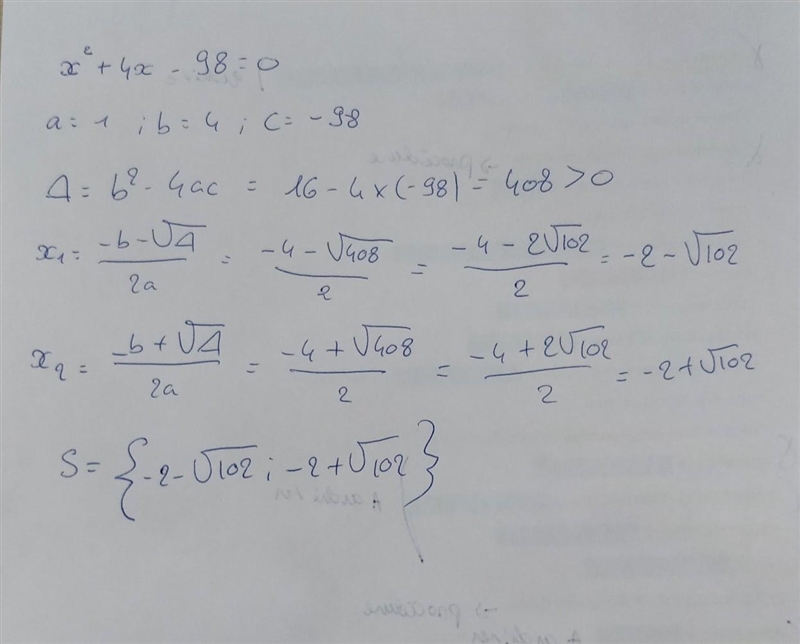 x² + 4x - 98 = 0
a = 1 ; b = 4 ; c = -98
Δ = b² - 4ac = 16 - 4 × (-98) = 408 > 0
x₁ = (-b - √Δ)/2a = (-4 - √408)/2 = (-4 - 2√102)/2 = -2 - √102
x₂ = (-b + √Δ)/2a = (-4 + √408)/2 = (-4 + 2√102)/2 = -2 + √102
S = {-2 - √102 ; -2 + √102}